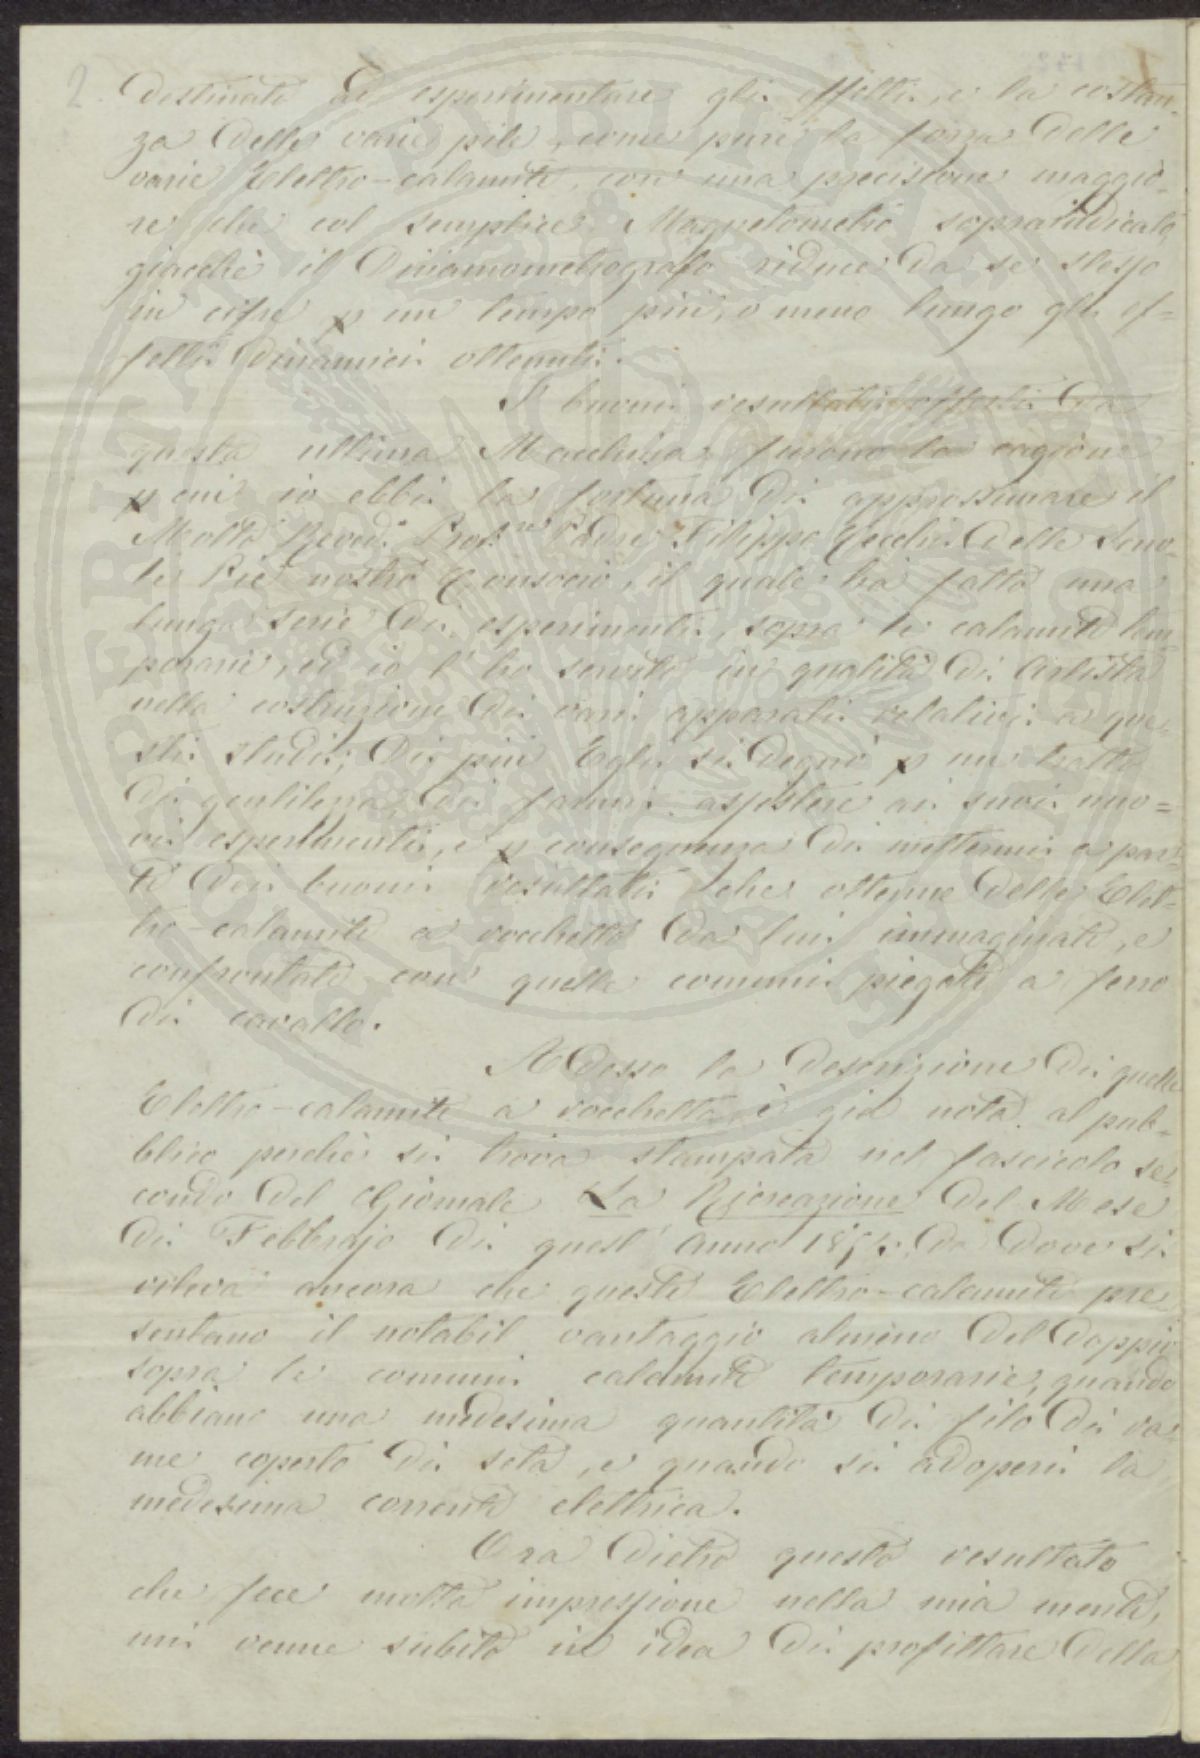 2.
destinate ad esperimentare gli effetti, e la costan-
za delle varie pile, come pure la forza delle
varie Elettro-calamite, con una precisione maggio-
re che col semplice Magnetometro sopraindicato,
giacchè il Dinamometrografo riduce da se stesso
in cifre p un tempo più, o meno lungo gli ef=
fetti dinamici ottenuti.
I buoni resultati offerti da
questa ultima Macchina furono la cagione
p cui io ebbi la fortuna di approssimare il
Molto Revd. Prof.re Padre Filippo Cecchi delle Scuo-
le Pie nostro Consocio, il quale ha fatto una
lunga serie di esperimenti, sopra le calamite tem-
porarie, ed io l'ho servito in qualità di Artista
nella costruzione di varj apparati relativi a que-
sti studi; Di più Egli si degnò p un tratto
di gentilezza di farmi assistere ai suoi nuo=
vi esperimenti, e p conseguenza di mettermi a par-
te dei buoni resultati che ottenne delle Elet-
tro-calamite a rocchetto da lui immaginate, e
confrontate con quelle comuni piegate a ferro
di cavallo.
Adesso la descrizione di quelle
Elettro-calamite a rocchetto è già nota al pub-
blico perchè si trova stampata nel fascicolo se-
condo del Giornale La Ricreazione del Mese
di Febbrajo di quest'anno da dove si
rileva ancora che queste Elettro-calamite pre-
sentano il notabil vantaggio almeno del doppio
sopra le comuni calamite temporarie, quando
abbiano una medesima quantità di filo di ra-
me coperto di seta, e quando si adoperi la
medesima corrente elettrica.
Ora dietro questo resultato
che fece molta impressione nella mia mente,
mi venne subito in idea di profittare della
POSPERITATI PUBLICAE AUGENDAE